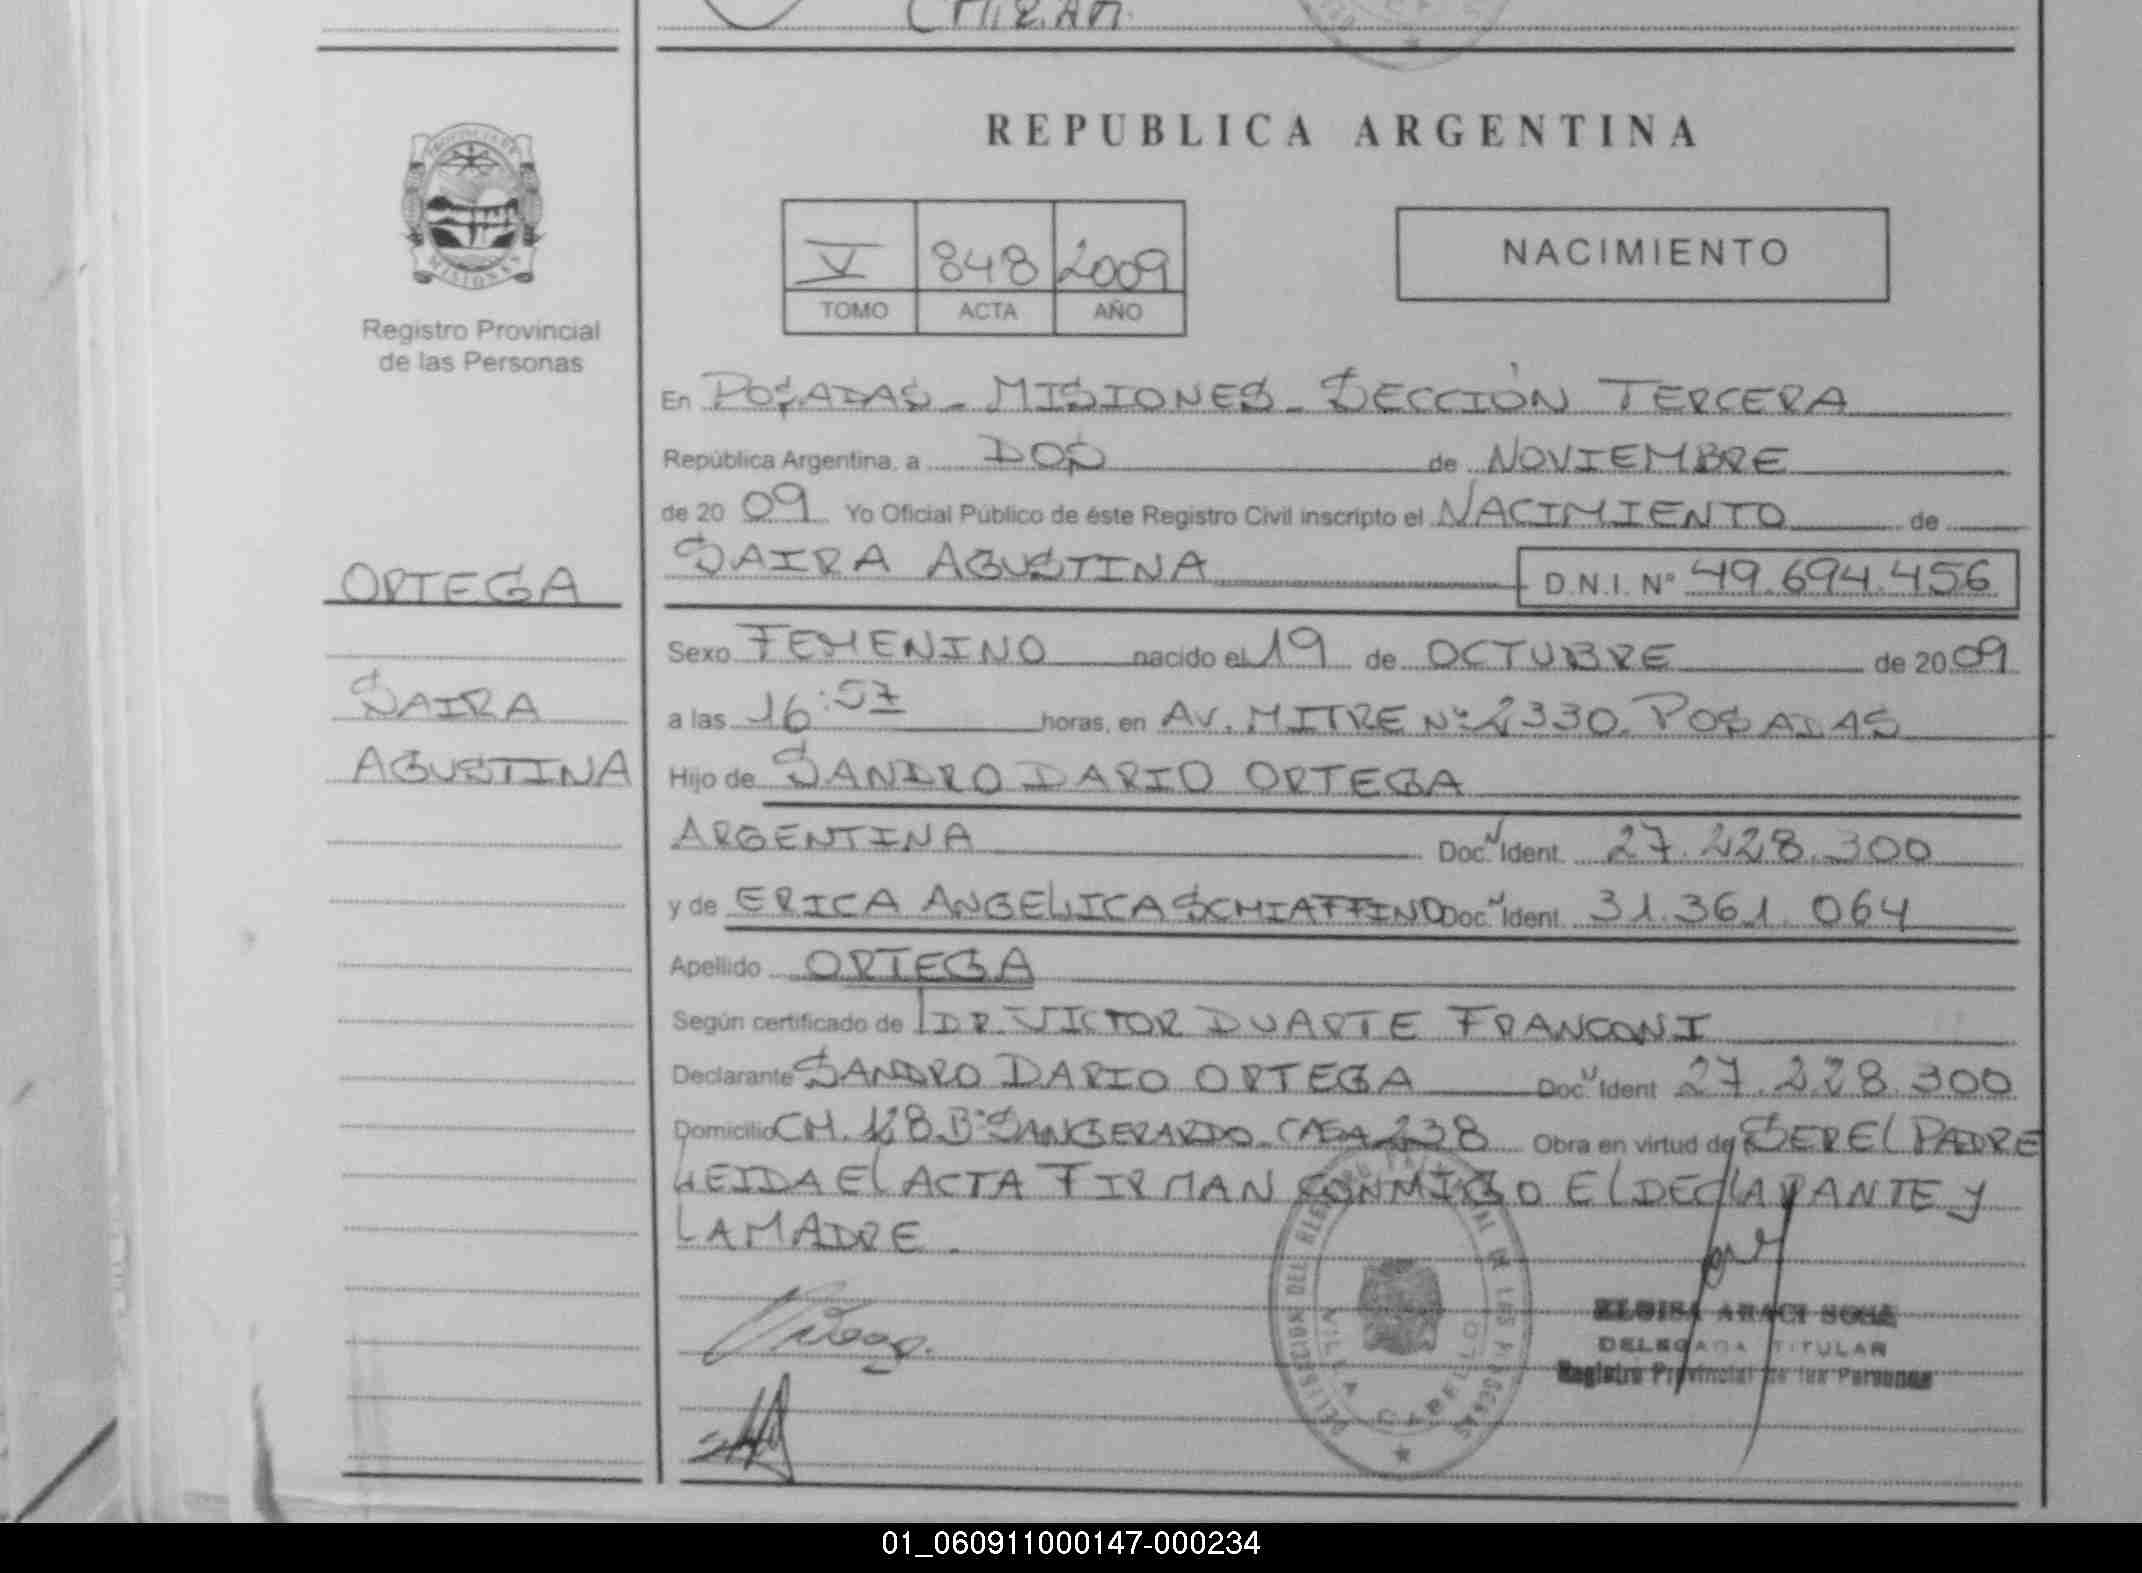 REPUBLICA ARGENTINA
PROVINCIA DE
MISIONES
Registro Provincial
de las Personas
V 848 2009
TOMO ACTA AÑO
NACIMIENTO
En POSADAS - MISIONES - SECCIÓN TERCERA
República Argentina, a DOS de NOVIEMBRE
de 2009 Yo Oficial Público de éste Registro Civil inscripto el NACIMIENTO de
SAIRA AGUSTINA D.N.I. Nº 49.694.456
ORTEGA
SAIRA
AGUSTINA
Sexo FEMENINO nacido el 19 de OCTUBRE de 2009
a las 16:57 horas, en AV. MITRE Nº 2330. POSADAS
Hijo de SANDRO DARIO ORTEGA
ARGENTINA Doc. Ident. 27.228.300
y de ERICA ANGELICA SCHIAFFINO Doc. Ident. 31.361.064
Apellido ORTEGA
Según certificado de DR. VICTOR DUARTE FRANCONI
Declarante SANDRO DARIO ORTEGA Doc. Ident 27.228.300
Domicilio CH. 128 Bº SAN GERARDO - CASA 238 Obra en virtud de SER EL PADRE
LEIDA EL ACTA FIRMAN CONMIGO EL DECLARANTE Y
LA MADRE.
DELEGACION DEL REGISTRO PROVINCIAL DE LAS PERSONAS
VILLA CABELLO
ELOISA ARACI SOSA
DELEGADA TITULAR
Registro Provincial de las Personas
01_060911000147-000234